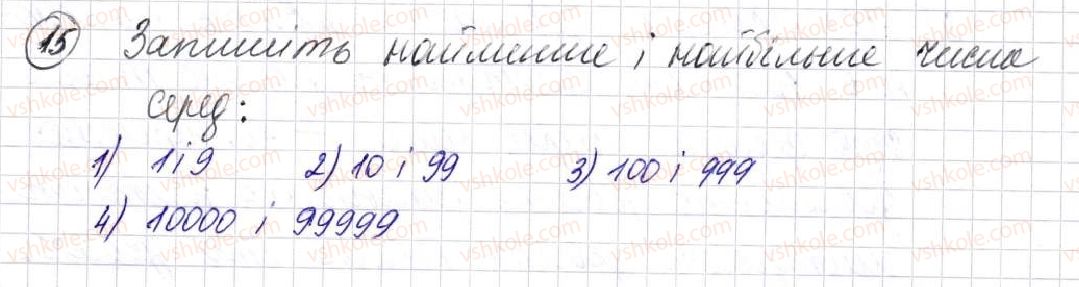 15 Запишіть найменше і найбільше числа
серед:
1) 1 і 9 2) 10 і 99 3) 100 і 999
4) 10000 і 99999